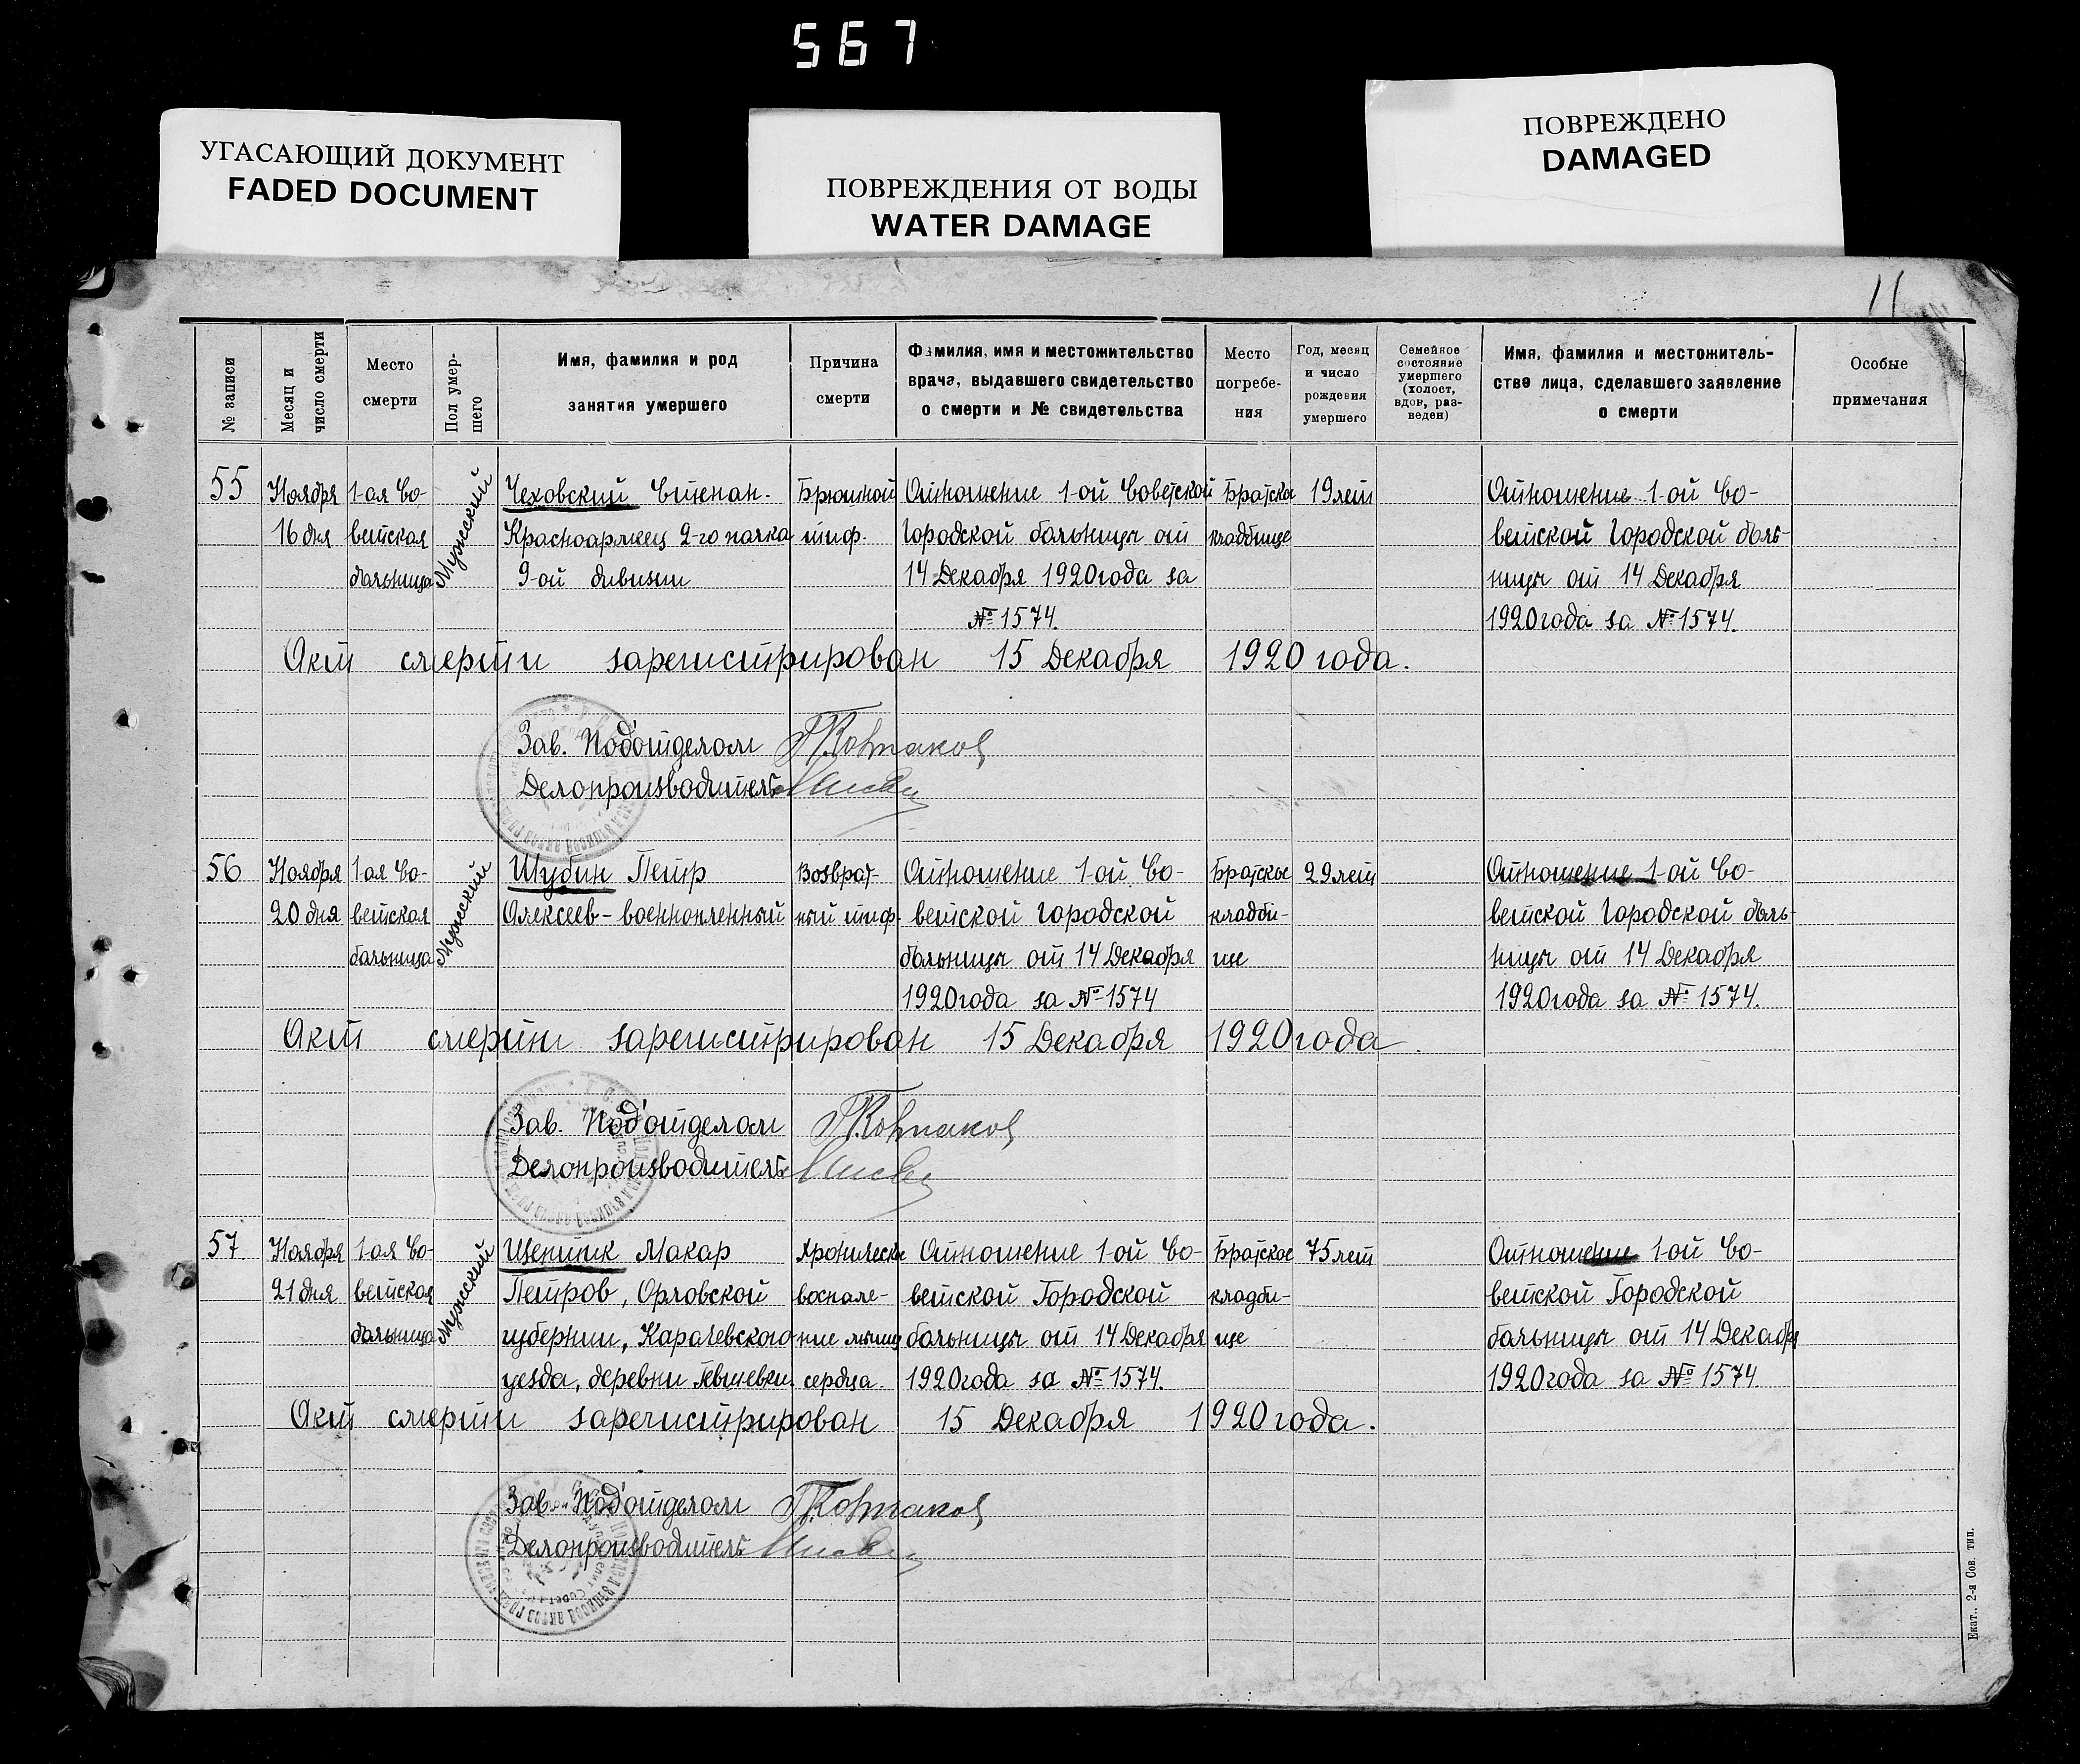 567
УГАСАЮЩИЙ ДОКУМЕНТ
FADED DOCUMENT
ПОВРЕЖДЕНИЯ ОТ ВОДЫ
WATER DAMAGE
ПОВРЕЖДЕНО
DAMAGED
11
№ записи
Месяц и
число смерти
Место
смерти
Пол умер-
шего
Имя, фамилия и род
занятия умершего
Причина
смерти
Фамилия, имя и местожительство
врача, выдавшего свидетельство
о смерти и № свидетельства
Место
погребе-
ния
Год, месяц
и число
рождения
умершего
Семейное
состояние
умершего
(холост,
вдов, раз-
веден)
Имя, фамилия и местожитель-
ство лица, сделавшего заявление
о смерти
Особые
примечания
55
Ноября
16 дня
1-ая Со-
ветская
больница
Мужской
Чеховский Степан.
Красноармеец 2-го полка
9-ой дивизии
Брюшной
тиф.
Отношение 1-ой Советской
Городской больницы от
14 Декабря 1920 года за
№ 1574.
Братское
кладбище
19 лет
Отношение 1-ой Со-
ветской Городской боль-
ницы от 14 Декабря
1920 года за № 1574.
Акт смерти зарегистрирован 15 Декабря 1920 года.
Зав. Подотделом
Делопроизводитель
56
Ноября
20 дня
1-ая Со-
ветская
больница
Мужской
Шубин Петр
Алексеев - военнопленный
Возврат-
ный тиф.
Отношение 1-ой Со-
ветской городской
больницы от 14 Декабря
1920 года за № 1574
Братское
кладби-
ще
29 лет
Отношение 1-ой Со-
ветской Городской боль-
ницы от 14 Декабря
1920 года за № 1574.
Акт смерти зарегистрирован 15 Декабря 1920 года
Зав. Подотделом
Делопроизводитель
57
Ноября
21 дня
1-ая Со-
ветская
больница
Мужской
Щептик Макар
Петров, Орловской
губернии, Карачевского
уезда, деревни
Хроническое
воспале-
ние мышц
сердца.
Отношение 1-ой Со-
ветской Городской
больницы от 14 Декабря
1920 года за № 1574.
Братское
кладби-
ще
75 лет
Отношение 1-ой Со-
ветской Городской
больницы от 14 Декабря
1920 года за № 1574
Акт смерти зарегистрирован 15 Декабря 1920 года.
Зав. Подотделом
Делопроизводитель
Екат., 2-я Сов. тип.